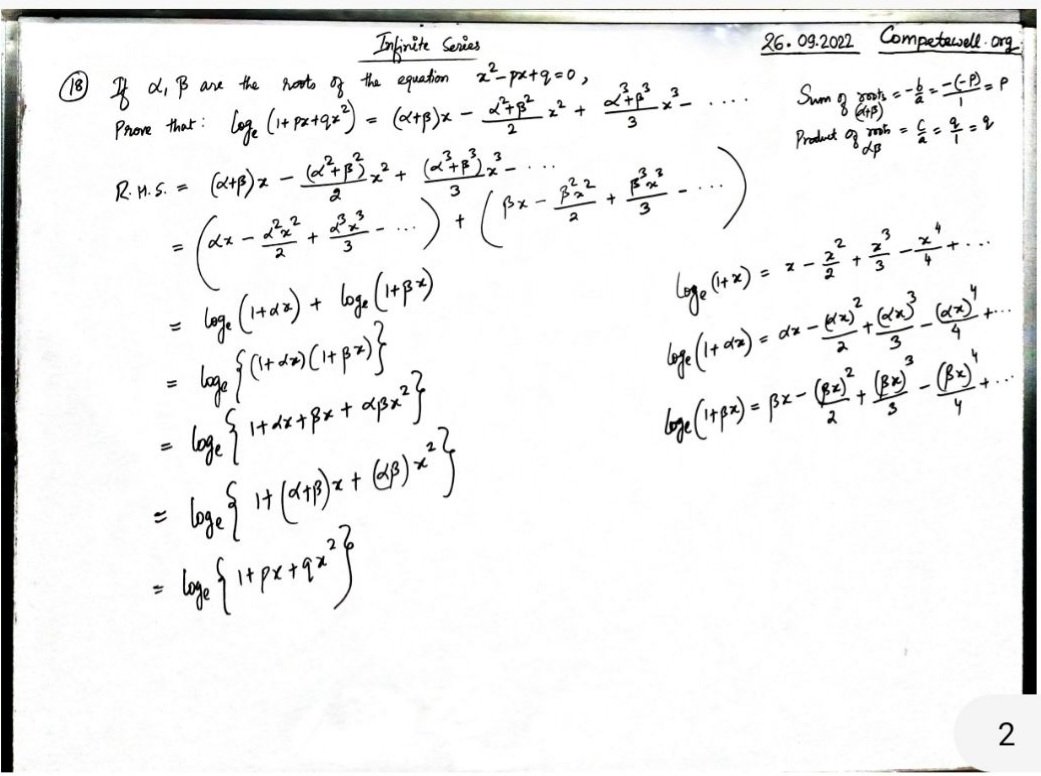 Infinite Series
26.09.2022 Competewell.org
(18) If α, β are the roots of the equation x² - px + q = 0,
Prove that: logₑ (1 + px + qx²) = (α+β)x - (α²+β²)/2 x² + (α³+β³)/3 x³ - ....
Sum of roots (α+β) = -b/a = -(-p)/1 = p
Product of roots αβ = c/a = q/1 = q
R.H.S. = (α+β)x - (α²+β²)/2 x² + (α³+β³)/3 x³ - ...
= (αx - α²x²/2 + α³x³/3 - ...) + (βx - β²x²/2 + β³x³/3 - ...)
= logₑ (1+αx) + logₑ (1+βx)
= logₑ {(1+αx)(1+βx)}
= logₑ {1+αx+βx + αβx²}
= logₑ {1+(α+β)x + (αβ)x²}
= logₑ {1+px+qx²}
logₑ (1+x) = x - x²/2 + x³/3 - x⁴/4 + ...
logₑ (1+αx) = αx - (αx)²/2 + (αx)³/3 - (αx)⁴/4 + ...
logₑ (1+βx) = βx - (βx)²/2 + (βx)³/3 - (βx)⁴/4 + ...
2